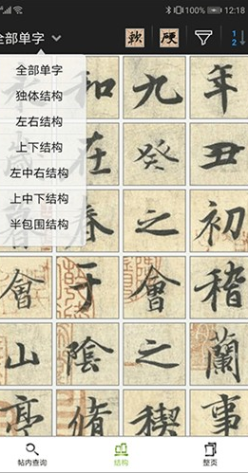 100% 12:18
全部单字
1
2
全部单字
独体结构
左右结构
上下结构
左中右结构
上中下结构
半包围结构
永和九年
歲在癸丑
暮春之初
會于會稽
山陰之蘭
亭脩稧事
帖内查询
结构
整页